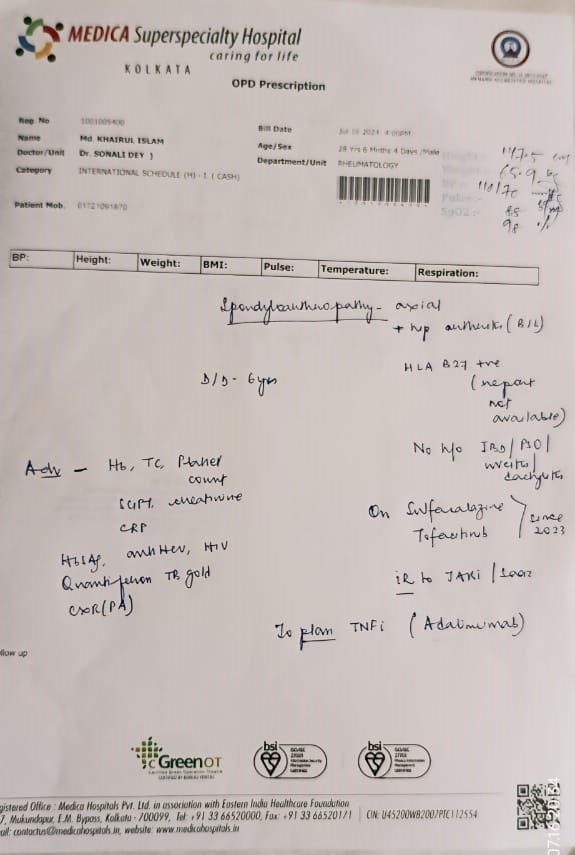 MEDICA Superspecialty Hospital
caring for life
KOLKATA
OPD Prescription
Reg. No 1001005400
Bill Date Jul 16 2024 4:00PM
Name Md. KHAIRUL ISLAM
Age/Sex 28 Yrs 6 Mnths 4 Days /Male
Doctor/Unit Dr. SONALI DEY )
Department/Unit RHEUMATOLOGY
Category INTERNATIONAL SCHEDULE (H) - I ( CASH)
Patient Mob.
147.5 cm
65.9 kg
110/70
Pulse:- 85
SpO2:- 98 %
BP: Height: Weight: BMI: Pulse: Temperature: Respiration:
Spondyloarthropathy - axial
+ hip arthritis (B/L)
HLA B27 +ve
(report
not
available)
D/D - 6yrs
No h/o IBD/PSO/
uveitis/
dactylitis
Adv - Hb, TC, Platelet
count
SGPT, creatinine
CRP
HbsAg, anti HCV, HIV
Quantiferon TB gold
CXR(PA)
On Sulfasalazine
Tofacitinib
since
2023
IR to JAKi / Saaz
To plan TNFi (Adalimumab)
llow up
GreenOT
bsi
bsi
gistered Office : Medica Hospitals Pvt. Ltd. in association with Eastern India Healthcare Foundation
7, Mukundapur, E.M. Bypass, Kolkata - 700099, Tel: +91 33 66520000, Fax: +91 33 66520171
CIN: U45200WB2007PTC112554
ail: contactus@medicahospitals.in, website: www.medicahospitals.in